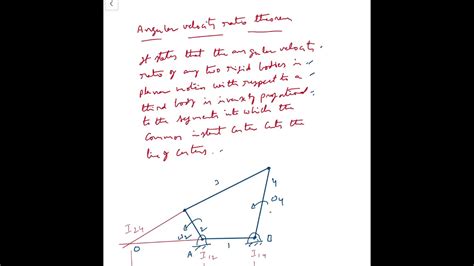 Angular velocity ratio theorem
It states that the angular velocity
ratio of any two rigid bodies in
planar motion with respect to a
third body is inversly proportional
to the segments into which the
common instant center cuts the
line of centers.
3
4
I24
ω4
ω2
2
O
A
1
B
I12
I14